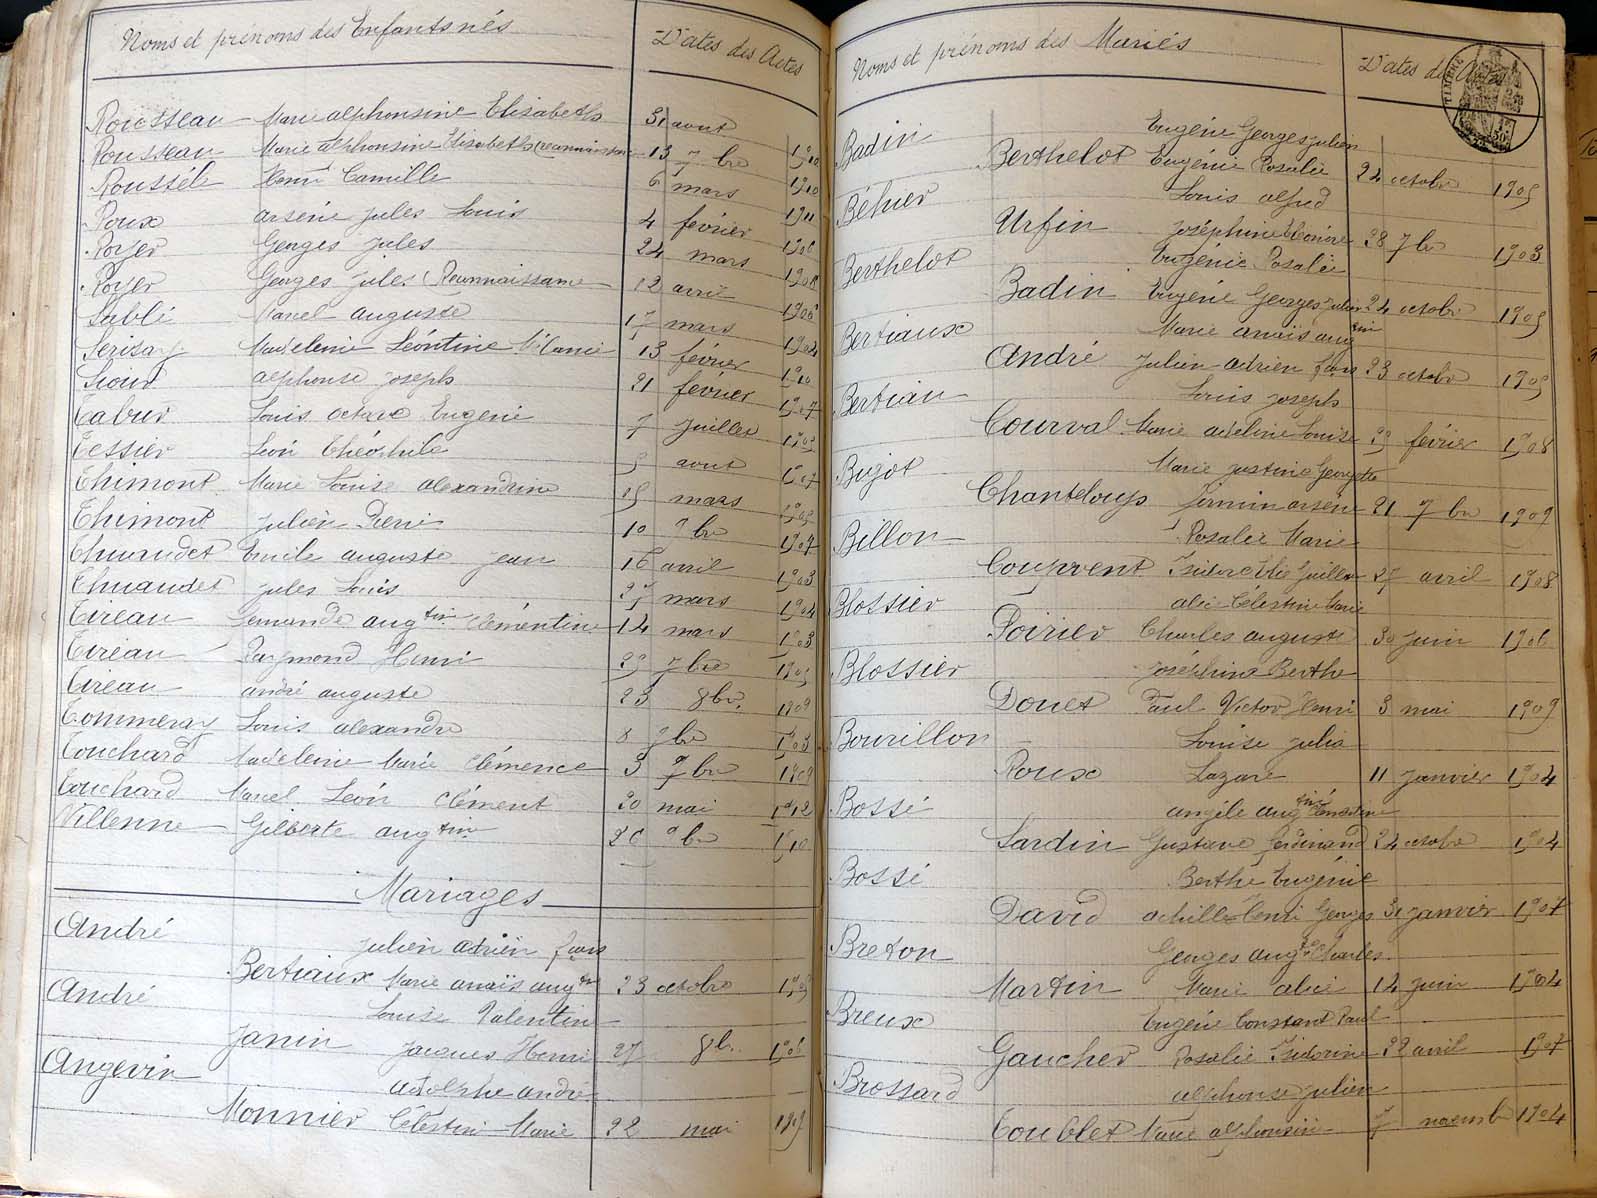 Noms et prénoms des Enfants nés Dates des Actes
Rousseau Marie alphonsine Elisabeth 31 aout 1910
Rousseau Marie alphonsine Elisabeth (reconnaissance 13 7bre 1910
Roussèle Henri Camille 6 mars 1911
Roux arsène jules Louis 4 février 1906
Royer Georges jules 24 mars 1908
Royer Georges jules (Reconnaissance 12 avril
Sablé Marcel auguste 17 mars 1904
Serisay Madeleine Léontine Mélanie 13 février 1910
Sioux alphonse joseph 21 février 1907
Tabur Louis octave Eugène 7 juillet
Tessier Léon Théophile aout 1907
Thimont Marie Louise alexandrine 15 mars
Thimont julien Pierre 10 9bre 1907
Thuaudet Emile auguste jean 16 avril 1903
Thuaudet jules Louis 27 mars 1904
Tireau Fernande augtine Clémentine 14 mars 1903
Tireau Raymond Henri 7bre 1905
Tireau andré auguste 23 8bre 1909
Tommeray Louis alexandre 8 1903
Touchard Madeleine Marie Clémence 3 9bre 1909
Touchard Marcel Léon Clément 20 mai 1912
Villenne Gilberte augtine 26 9bre 1910
Mariages
André julien adrien fçois
Bertiaux Marie anaïs augtine 23 octobre 1905
André Louise Valentine
Janin Jacques Henri 27 8bre 1906
Angevin Adolphe andré
Monnier Célestine Marie 22 mai 1905
Noms et prénoms des Mariés Dates des Actes
TIMBRE
Badin Eugène Georges julien
Berthelot Eugénie Rosalie 24 octobre 1905
Béhier Louis alfred
Urfin joséphine Eléonore 28 7bre 1903
Berthelot Eugénie Rosalie
Badin Eugène Georges julien 24 octobre 1905
Bertiaux Marie anaïs augtine
André julien adrien fçois 23 octobre 1905
Bertiau Louis joseph
Courval Marie adeline Louise février 1908
Bujot Marie justine Georgette
Chanteloup firmin arsène 21 7bre 1909
Billon Rosalie Marie
Couprent Isidore Guillme 27 avril 1908
Blossier alice Célestine Marie
Poirier Charles auguste 30 juin 1906
Blossier joséphine Berthe
Douet Paul Victor Henri 3 mai 1909
Bourillon Louise julia
Roux Lazare 11 janvier 1904
Bossé angèle augtine
Sardin Gustave ferdinand 24 octobre 1904
Bossé Berthe Eugénie
David achille Henri Georges 31 janvier 1907
Breton Georges augte Charles
Martin Marie alice 14 juin 1904
Breux Eugène Constant Paul
Gaucher Rosalie Isidorine 22 avril 1907
Brossard alphonse julien
Toublet Marie alphonsine 7 novemb 1904